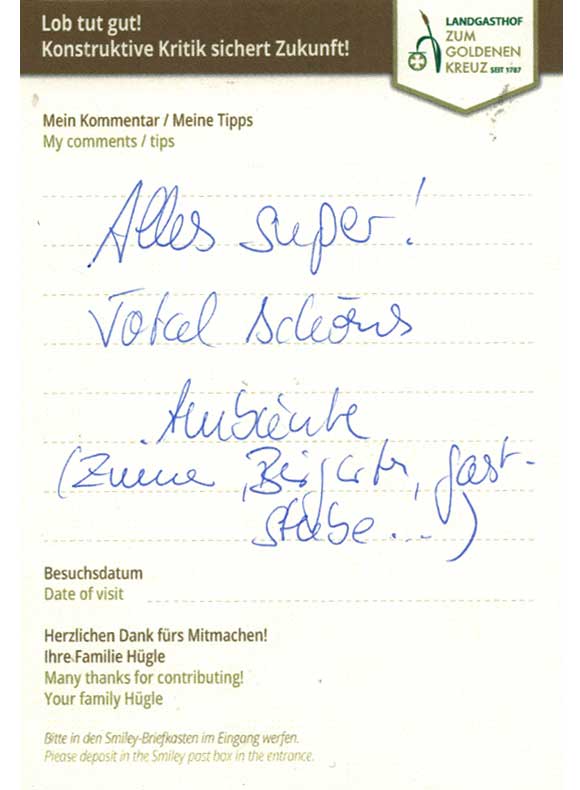 Lob tut gut!
Konstruktive Kritik sichert Zukunft!
LANDGASTHOF
ZUM
GOLDENEN
KREUZ SEIT 1787
Mein Kommentar / Meine Tipps
My comments / tips
Alles super!
Total schönes
Ambiente
(Zimmer, Biergarten, Gast-
stube...)
Besuchsdatum
Date of visit
Herzlichen Dank fürs Mitmachen!
Ihre Familie Hügle
Many thanks for contributing!
Your family Hügle
Bitte in den Smiley-Briefkasten im Eingang werfen.
Please deposit in the Smiley post box in the entrance.